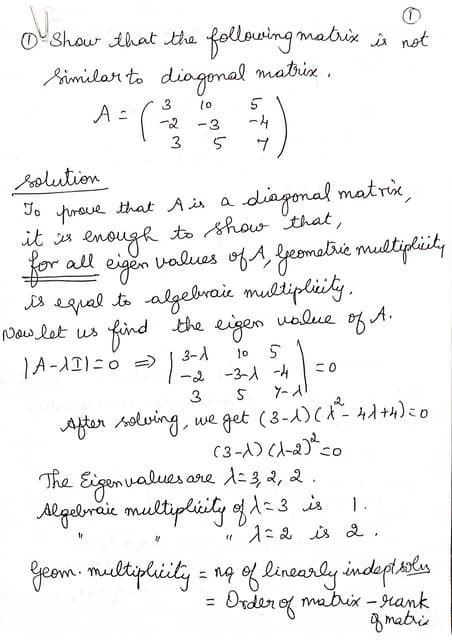 ①
① Show that the following matrix is not
similar to diagonal matrix.
A = ( 3 10 5
-2 -3 -4
3 5 7 )
Solution
To prove that A is a diagonal matrix,
it is enough to show that,
for all eigen values of A, Geometric multiplicity
is equal to algebraic multiplicity.
Now let us find the eigen value of A.
|A-λI|=0 ⇒ | 3-λ 10 5
-2 -3-λ -4
3 5 7-λ | = 0
After solving, we get (3-λ)(λ²- 4λ+4)=0
(3-λ)(λ-2)²=0
The Eigenvalues are λ=3, 2, 2.
Algebraic multiplicity of λ=3 is 1.
" " " λ=2 is 2.
Geom. multiplicity = no of linearly indept solns
= Order of matrix - rank
of matrix